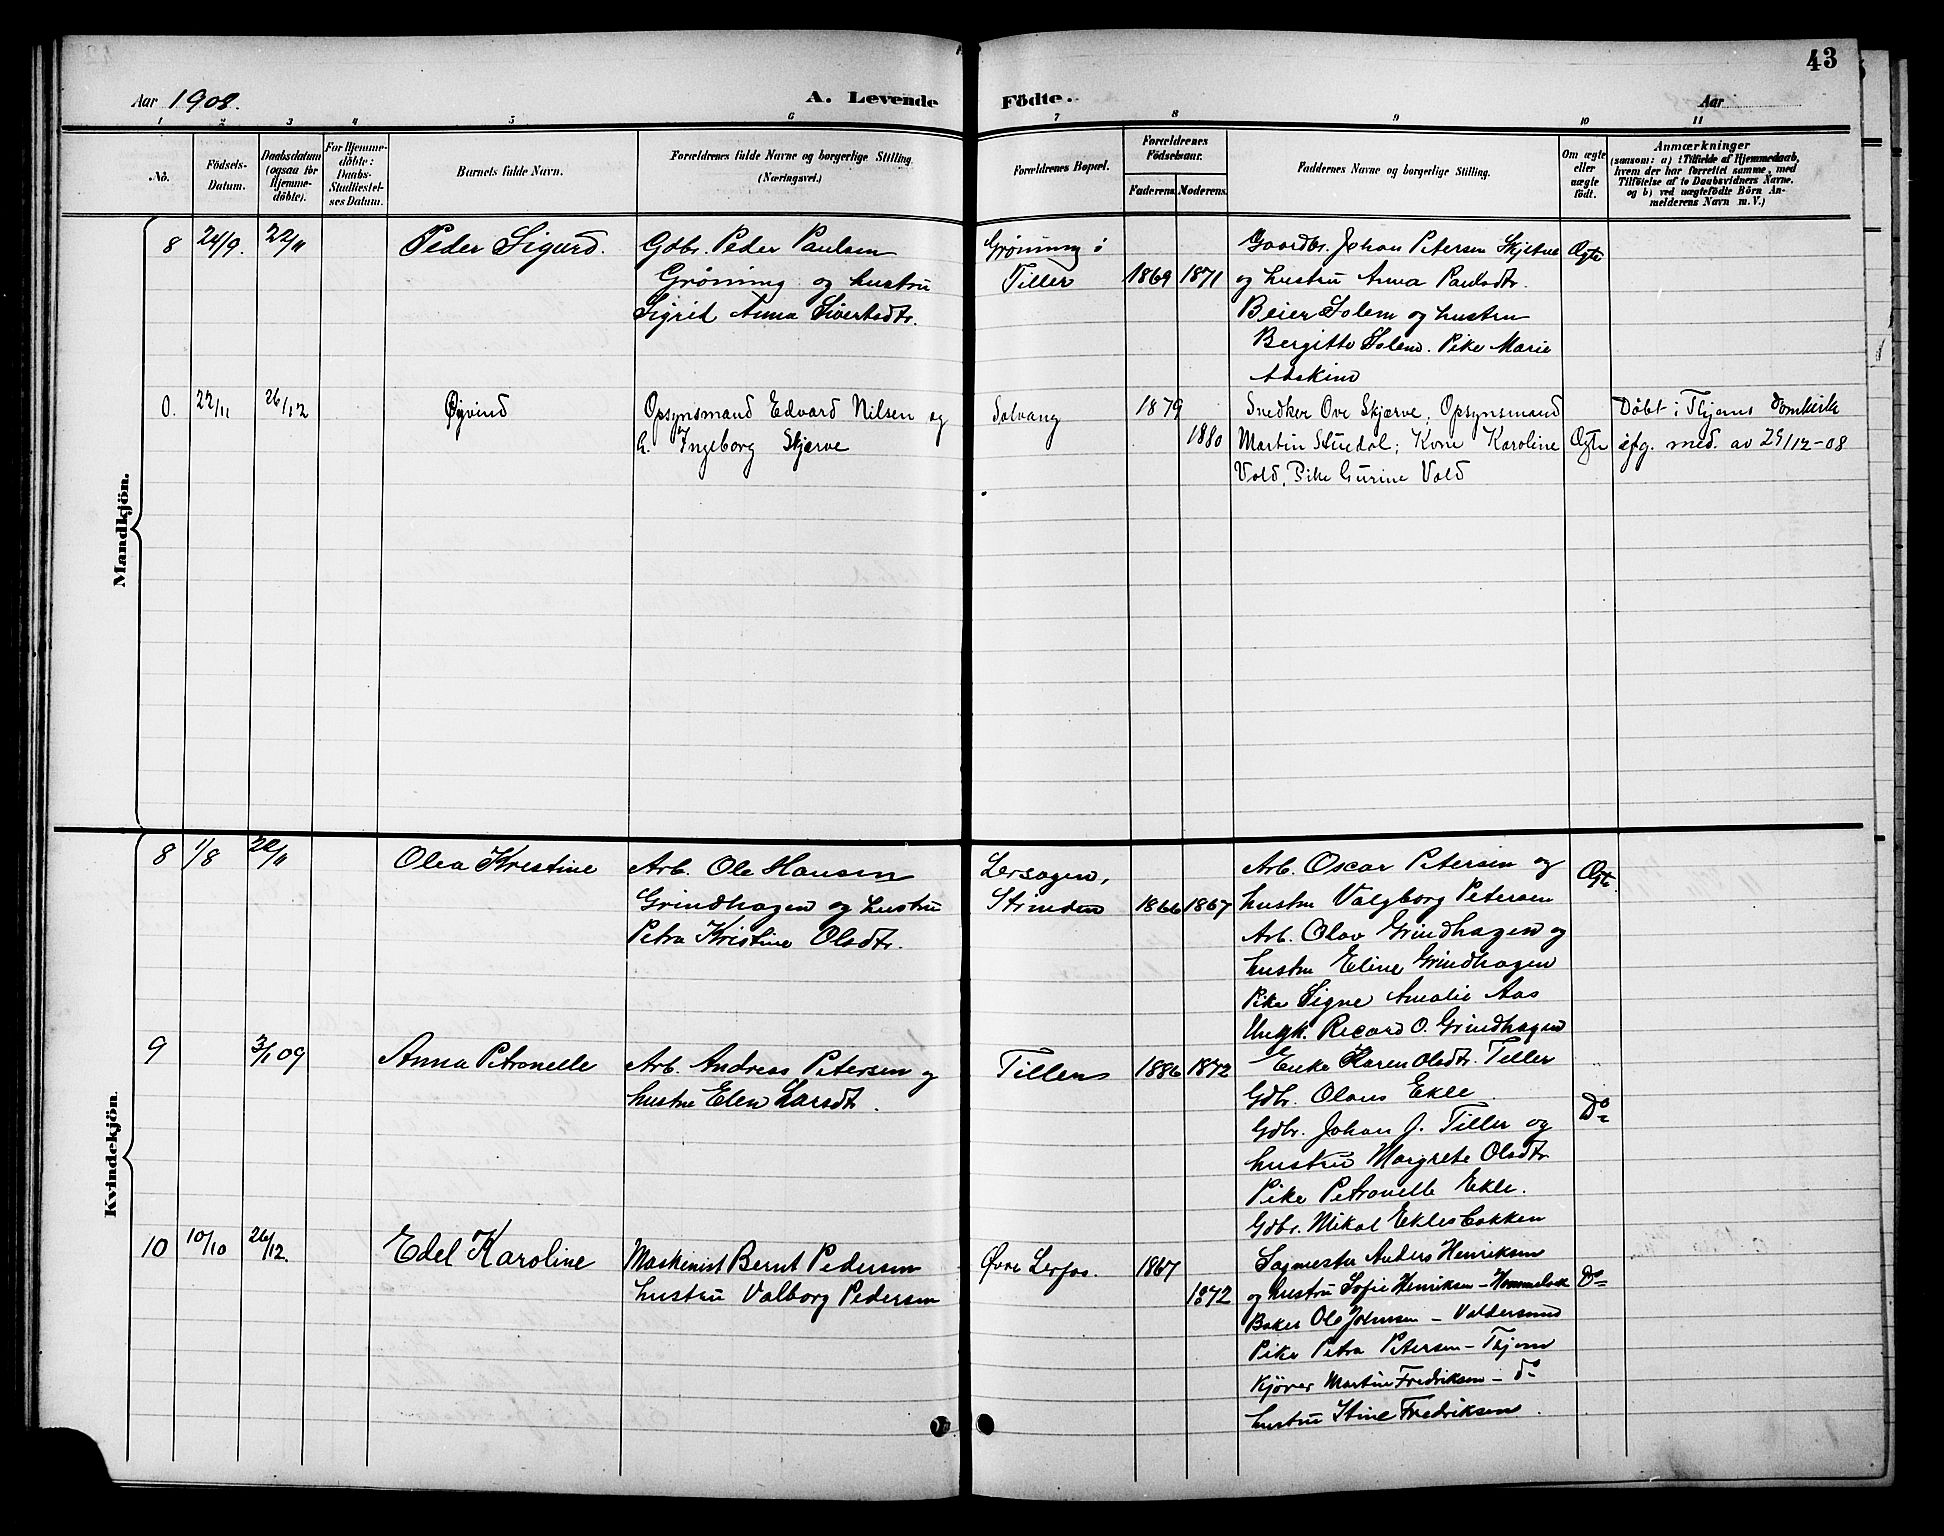 43
Aar 1908.
A. Levende Födte.
Aar
1 2 3 4 5 6 7 8 9 10 11
No.
Födsels-
Datum.
Daabsdatum
(ogsaa for
Hjemme-
döbte).
For Hjemme-
döbte:
Daabs-
Stadfæstel-
ses Datum.
Barnets fulde Navn.
Forældrenes fulde Navne og borgerlige Stilling.
(Næringsvei.)
Forældrenes Bopæl.
Forældrenes
Födselsaar.
Faderens. Moderens.
Faddernes Navne og borgerlige Stilling.
Om ægte
eller
uægte
födt.
Anmærkninger
(saasom: a) i Tilfælde af Hjemmedaab,
hvem der har forrettet samme, med
Tilföielse af to Daabsvidners Navne.
og b) ved uægtefödte Börn An-
melderens Navn m. V.)
Mandkjön.
8 24/9. 22/11 Peder Sigurd.
Gdbr. Peder Paulsen
Grøning og hustru
Sigrid Anna Sivertsdtr.
Grøning i
Tiller
1869 1871
Gaardbr. Johan Petersen Skjetne
og hustru Anna Paulsdtr.
Beier Solem og hustru
Bergitte Solem. Pike Marie
Ægte
0. 22/11 26/12 Øyvind
Opsynsmand Edvard Nilsen og
h. Ingeborg Skjerve
Solvang
1879
1880
Snedker Ove Skjerve, Opsynsmand
Martin Stuedal; Kone Karoline
Vold, Pike Gurine Vold
Ægte
Døbt i Thjems Domkirke
ifg. med. av 29/12-08
Kvindekjön.
8 1/8 22/11 Olea Kristine
Arb. Ole Hansen
Grindhagen og hustru
Petra Kristine Olsdtr.
Lersagen,
Strinden
1866 1867
Arb. Oscar Petersen og
hustru Valgborg Petersen
Arb. Olav Grindhagen og
hustru Eline Grindhagen
Pike Signe Amalie Aas
Ungk. Ricard O. Grindhagen
Ægte.
9 3/1 09 Anna Petronelle
Arb. Andreas Petersen og
hustru Elen Larsdtr.
Tiller
1886 1872
Enke Karen Olsdtr. Tiller
Gdbr. Olaus Ekle
Gdbr. Johan J. Tiller og
hustru Margrete Olsdtr.
Pike Petronelle Ekle.
Gdbr. Mikal Eklesbakken
Do
10 10/10 26/12. Edel Karoline
Maskinist Bernt Pedersen
hustru Valborg Pedersen
Øvre Lerfos.
1867
1872
Sagmester Anders Henriksen
og hustru Sofie Henriksen - Hommelvik
Baker Ole Johnsen - Valdersund
Pike Petra Petersen - Thjem
Kjører Martin Fredriksen - do
hustru Stine Fredriksen.
Do